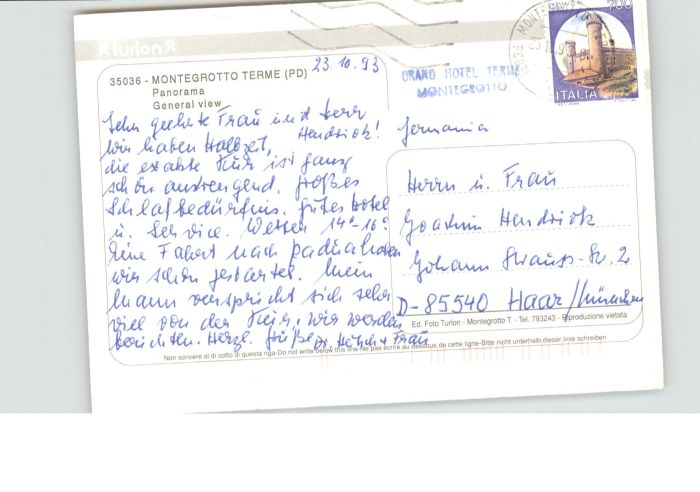 turlon
35036 - MONTEGROTTO TERME (PD)
Panorama
General view
23.10.93
Sehr geehrte Frau und Herr
Hendriok!
wir haben Halbzeit,
die exakte Kur ist ganz
schön anstrengend. großes
Schlafbedürfnis. gutes Hotel
u. Service. Wetter 14°-16°
Eine Fahrt nach Padua haben
wir schon gestartet. Mein
Mann verspricht sich sehr
viel von der Kur, wir werden
berichten. Herzl. Grüße
Dr. + Frau
GRAND HOTEL TERME
MONTEGROTTO
700
ITALIA
Germania
Herrn u. Frau
Joachim Hendriok
Johann Strauss-Str. 2
D-85540 Haar/München
Ed. Foto Turlon - Montegrotto T. - Tel. 793243 - Riproduzione vietata
Non scrivere al di sotto di questa riga-Do not write below this line-Ne pas écrire au dessous de cette ligne-Bitte nicht unterhalb dieser linie schreiben